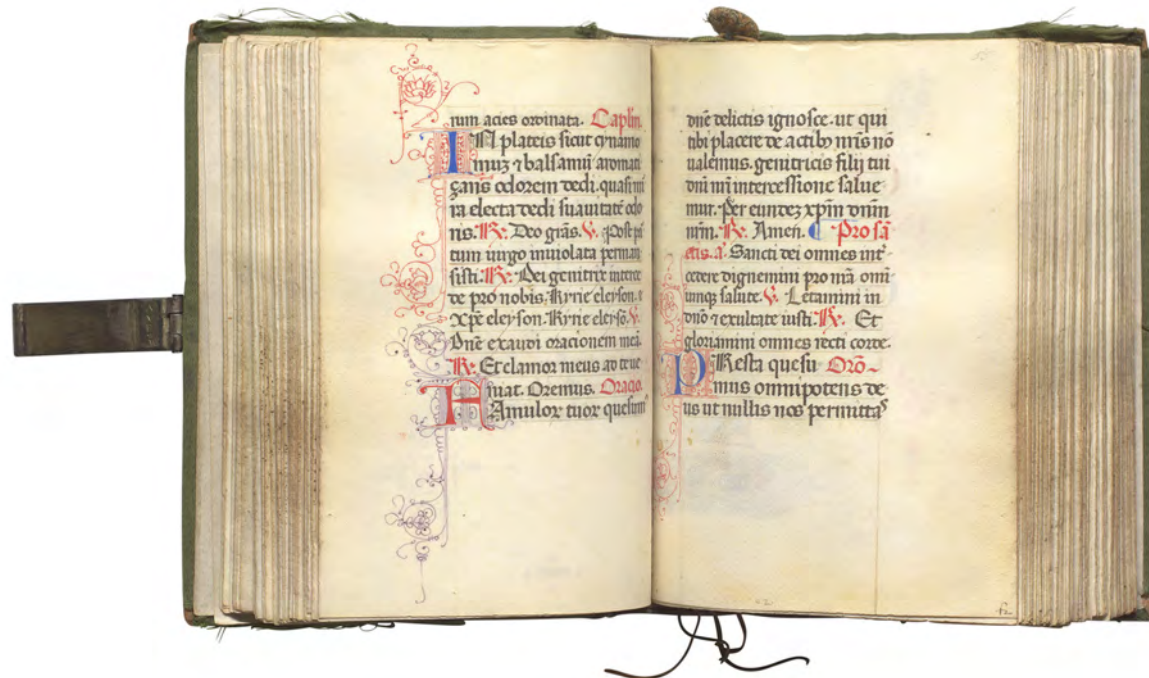 num acies ordinata. Caplm.
IN plateis sicut cynamo
muz ⁊ balsamū aromati
çans odorem dedi. quasi mi
ra electa dedi suauitatē odo
ris. ℟. Deo grās. ℣. Post p̄
tum uirgo inuiolata perman
sisti. ℟. Dei genitrix interce
de pro nobis. Kyrie eleyson.
Xp̄e eleyson. Kyrie eleysō. ℣.
Dn̄e exaudi oracionem meā.
℟. Et clamor meus ad te ue
niat. Oremus. Oracio.
FAmulor tuor quesum
dn̄e delictis ignosce. ut qui
tibi placere de actibꝫ nr̄is nō
ualemus. genitricis filij tui
dn̄i nr̄i intercessione salue
mur. Per eundez xp̄m dn̄m
nr̄m. ℟. Amen. Pro sā
ctis. a. Sancti dei omnes int
cedere dignemini pro nr̄a omī
umqꝫ salute. ℣. Letamini in
dn̄o ⁊ exultate iusti. ℟. Et
gloriamini omnes recti corde.
PResta quesu Orō
mus omnipotens de
us ut nullis nos permittas